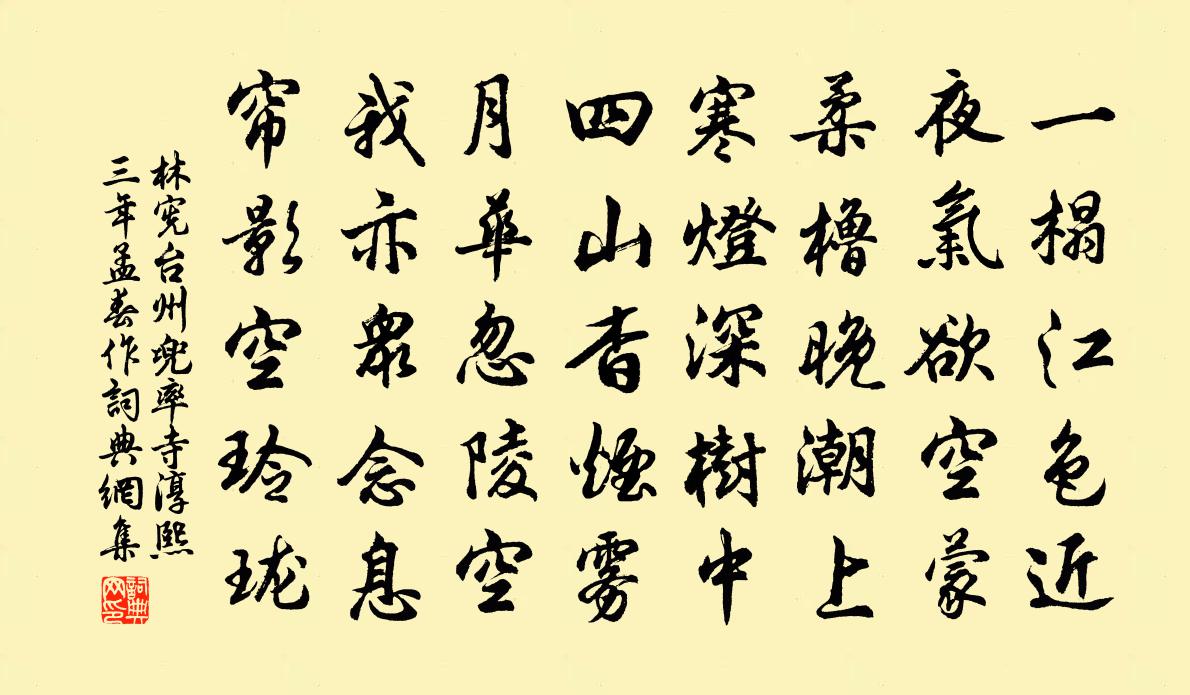 一榻江色近
夜氣欲空蒙
柔櫓晚潮上
寒燈深樹中
四山杳煙雾
月華忽陵空
我亦衆念息
帘影空玲珑
林宪台州兜率寺淳熙
三年孟春作詞典網集